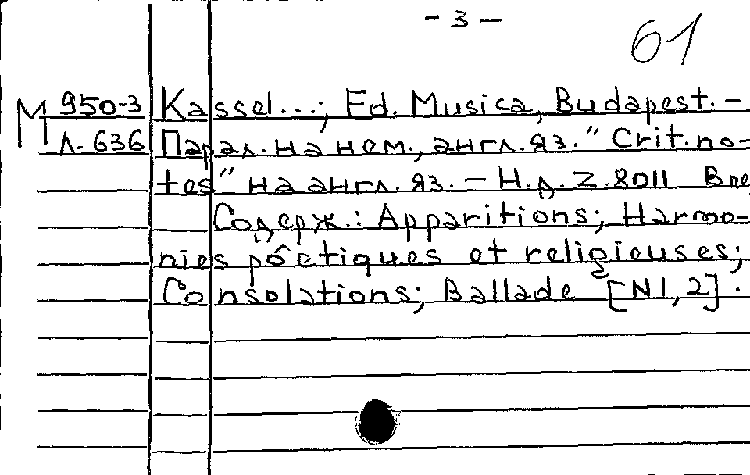 - 3 -
61
М 950-3 Kassel...; Ed. Musica, Budapest. -
Л-636 Парал. на нем., англ. яз. " Crit. no-
tes" на англ. яз. - Н.д. Z. 8011 Bne
Содерж.: Apparitions; Harmo-
nies póetiques et religieuses;
Consolations; Ballade [N1,2].